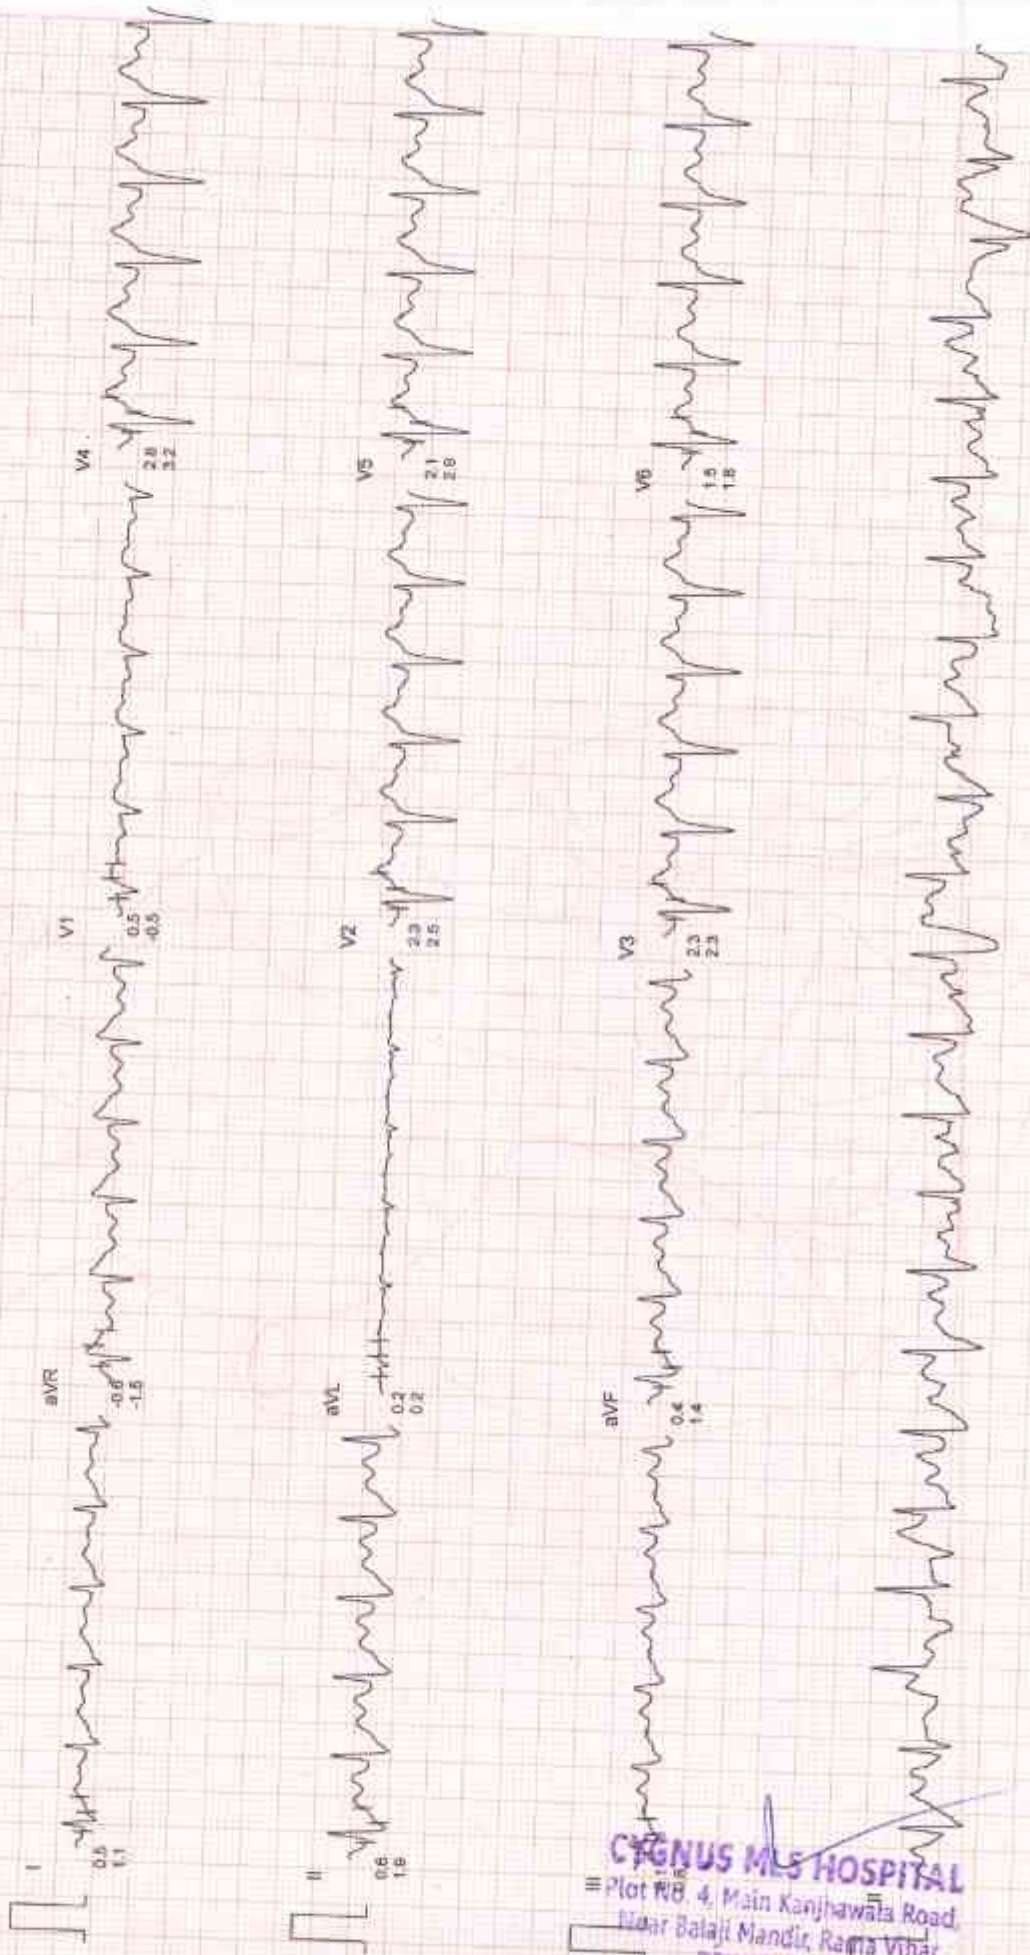 I
0.5
1.1
aVR
-0.6
-1.5
V1
0.5
-0.5
V4
2.8
3.2
II
0.6
1.9
aVL
0.2
0.2
V2
2.3
2.5
V5
2.1
2.8
III
aVF
0.4
1.4
V3
2.3
2.3
V6
1.5
1.8
II
CYGNUS MLS HOSPITAL
Plot No. 4, Main Kanjhawala Road,
Near Balaji Mandir, Rama Vihar,